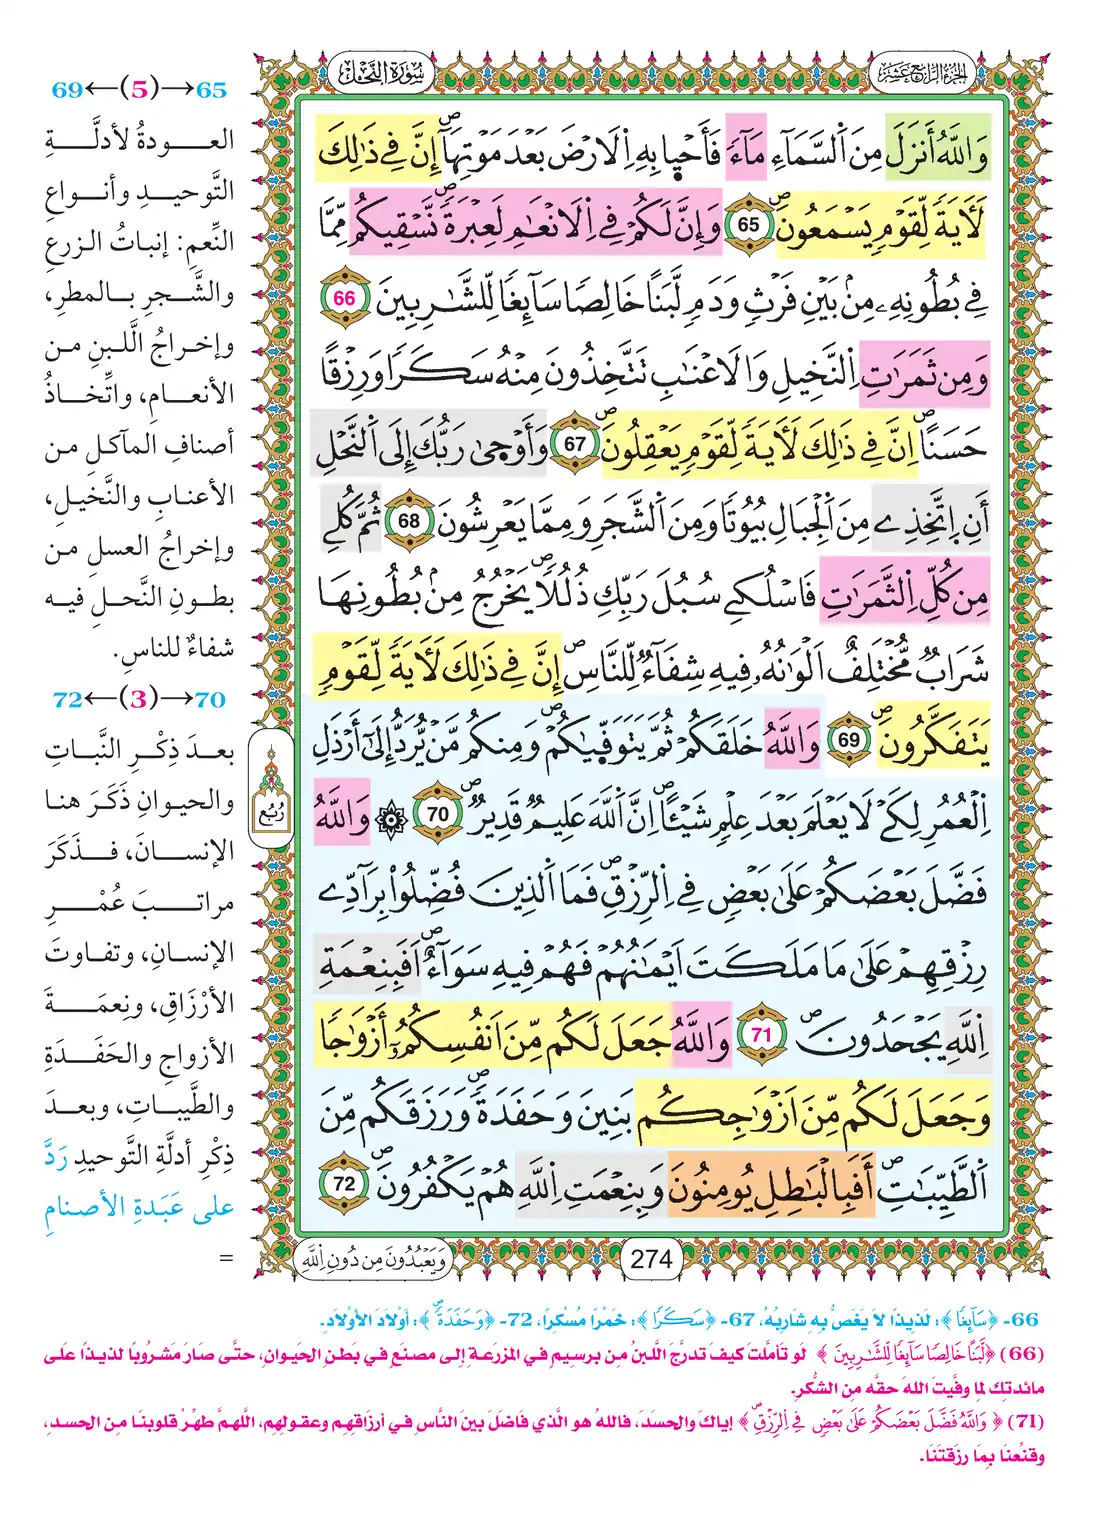 سُورَةُ النَّحْلِ
الجُزْءُ الرَّابِعَ عَشَرَ
وَاللَّهُ أَنزَلَ مِنَ اَلسَّمَآءِ مَآءٗ فَأَحْيا بِهِ اِلَارْضَ بَعْدَ مَوْتِهَآۖ إِنَّ فِي ذَٰلِكَ
لَأٓيَةٗ لِّقَوْمٖ يَسْمَعُونَۖ 65 وَإِنَّ لَكُمْ فِي اِلَانْعَٰمِ لَعِبْرَةٗۖ نَّسْقِيكُم مِّمَّا
فِي بُطُونِهِۦ مِنۢ بَيْنِ فَرْثٖ وَدَمٖ لَّبَناً خَالِصاٗ سَآئِغاٗ لِّلشَّٰرِبِينَ 66
وَمِن ثَمَرَٰتِ اِلنَّخِيلِ وَالَاعْنَٰبِ تَتَّخِذُونَ مِنْهُ سَكَراٗ وَرِزْقاً
حَسَناًۖ اِنَّ فِي ذَٰلِكَ لَأٓيَةٗ لِّقَوْمٖ يَعْقِلُونَۖ 67 وَأَوْحَىٰ رَبُّكَ إِلَى اَلنَّحْلِ
أَنِ اِتَّخِذِے مِنَ اَلْجِبَالِ بُيُوتاٗ وَمِنَ اَلشَّجَرِ وَمِمَّا يَعْرِشُونَ 68 ثُمَّ كُلِے
مِن كُلِّ اِلثَّمَرَٰتِ فَاسْلُكِے سُبُلَ رَبِّكِ ذُلُلاٗۖ يَخْرُجُ مِنۢ بُطُونِهَا
شَرَابٞ مُّخْتَلِفٌ اَلْوَٰنُهُۥ فِيهِ شِفَآءٞ لِّلنَّاسِۖ إِنَّ فِي ذَٰلِكَ لَأٓيَةٗ لِّقَوْمٖ
يَتَفَكَّرُونَۖ 69 وَاللَّهُ خَلَقَكُمْ ثُمَّ يَتَوَفّيٰكُمْۖ وَمِنكُم مَّنْ يُّرَدُّ إِلَىٰٓ أَرْذَلِ
اِلْعُمُرِ لِكَےْ لَا يَعْلَمَ بَعْدَ عِلْمٖ شَيْـٔاًۖ اِنَّ اَللَّهَ عَلِيمٞ قَدِيرٞۖ 70 ۞ وَاللَّهُ
فَضَّلَ بَعْضَكُمْ عَلَىٰ بَعْضٖ فِي اِلرِّزْقِۖ فَمَا اَلذِينَ فُضِّلُواْ بِرَآدِّے
رِزْقِهِمْ عَلَىٰ مَا مَلَكَتَ اَيْمَٰنُهُمْ فَهُمْ فِيهِ سَوَآءٌۖ اَفَبِنِعْمَةِ
اِللَّهِ يَجْحَدُونَۖ 71 وَاللَّهُ جَعَلَ لَكُم مِّنَ اَنفُسِكُمُۥٓ أَزْوَٰجاٗ
وَجَعَلَ لَكُم مِّنَ اَزْوَٰجِكُم بَنِينَ وَحَفَدَةٗۖ وَرَزَقَكُم مِّنَ
اَلطَّيِّبَٰتِۖ أَفَبِالْبَٰطِلِ يُومِنُونَ وَبِنِعْمَتِ اِللَّهِ هُمْ يَكْفُرُونَۖ 72
274
وَيَعْبُدُونَ مِن دُونِ اِللَّهِ
رُبُع
65→(5)←69
العودةُ لأدلَّةِ
التَّوحيدِ وأنواعِ
النِّعمِ: إنباتُ الزرعِ
والشَّجرِ بالمطرِ،
وإخراجُ اللَّبنِ من
الأنعامِ، واتِّخاذُ
أصنافِ المآكلِ من
الأعنابِ والنَّخيلِ،
وإخراجُ العسلِ من
بطونِ النَّحلِ فيه
شفاءٌ للناسِ.
70→(3)←72
بعدَ ذِكْرِ النَّباتِ
والحيوانِ ذَكَرَ هنا
الإنسانَ، فذَكَرَ
مراتبَ عُمْرِ
الإنسانِ، وتفاوتَ
الأرْزاقِ، ونِعمَةَ
الأزواجِ والحَفَدَةِ
والطَّيباتِ، وبعدَ
ذِكْرِ أدلَّةِ التَّوحيدِ رَدَّ
على عَبَدَةِ الأصنامِ
=
66- ﴿سَآئِغاٗ﴾: لَذِيذًا لاَ يَغَصُّ بِهِ شَارِبُهُ، 67- ﴿سَكَراٗ﴾: خَمْرًا مُسْكِرًا، 72- ﴿وَحَفَدَةٗۖ﴾: أَوْلَادَ الأَوْلَادِ.
(66) ﴿لَّبَناً خَالِصاٗ سَآئِغاٗ لِّلشَّٰرِبِينَ﴾ لو تأمَّلتَ كيفَ تدرجَ اللَّبنُ من برسيمٍ في المزرعةِ إلى مصنعٍ في بطنِ الحيوانِ، حتَّى صارَ مشروبًا لذيذًا على
مائدتِك لما وفَّيتَ اللهَ حقَّه مِن الشُّكرِ.
(71) ﴿وَاللَّهُ فَضَّلَ بَعْضَكُمْ عَلَىٰ بَعْضٖ فِي اِلرِّزْقِۖ﴾ إياكَ والحسَدَ، فاللهُ هو الَّذي فاضَلَ بَينَ النَّاسِ في أرزاقِهم وعقولِهم، اللهمَّ طهِّرْ قلوبَنا مِن الحسدِ،
وقنِّعنَا بِمَا رزَقتَنَا.